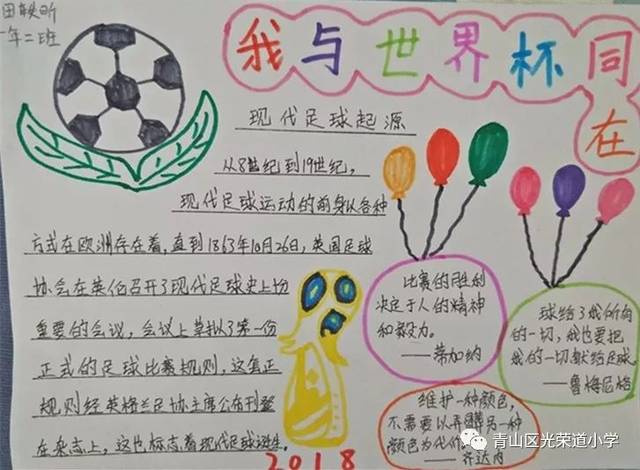 一年二班
我与世界杯同在
现代足球起源
从8世纪到19世纪，
现代足球运动的前身以各种
方式在欧洲存在着，直到1863年10月26日，英国足球
协会在英伦召开了现代足球史上份
重要的会议，会议上草拟了第一份
正式的足球比赛规则，这套正
规则经英格兰足协主席公布刊登
在杂志上，这也标志着现代足球诞生。
比赛的胜利
决定于人的精神
和毅力。
——蒂加纳
球给了我所有
的一切，我也要把
我的一切献给足球。
——鲁梅尼格
维护一种颜色，
不需要以弄 另一种
颜色为代价
——齐达内
2018
青山区光荣道小学